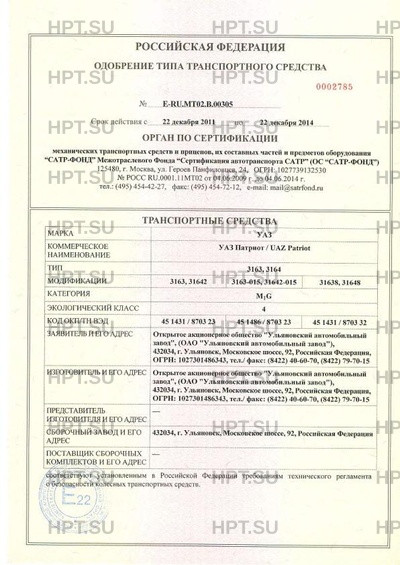 РОССИЙСКАЯ ФЕДЕРАЦИЯ
ОДОБРЕНИЕ ТИПА ТРАНСПОРТНОГО СРЕДСТВА
0002785
№ E-RU.MT02.B.00305
Срок действия с 22 декабря 2011 по 22 декабря 2014
ОРГАН ПО СЕРТИФИКАЦИИ
механических транспортных средств и прицепов, их составных частей и предметов оборудования
"САТР-ФОНД" Межотраслевого Фонда "Сертификация автотранспорта САТР" (ОС "САТР-ФОНД")
125480, г. Москва, ул. Героев Панфиловцев, 24, ОГРН: 1027739132530
№ РОСС RU.0001.11МТ02 от 04.06.2009 г. до 04.06.2014 г.
тел.: (495) 454-42-27, факс: (495) 454-72-12, e-mail: mail@satrfond.ru
ТРАНСПОРТНЫЕ СРЕДСТВА
МАРКА УАЗ
КОММЕРЧЕСКОЕ НАИМЕНОВАНИЕ УАЗ Патриот / UAZ Patriot
ТИП 3163, 3164
МОДИФИКАЦИИ 3163, 31642 3163-015, 31642-015 31638, 31648
КАТЕГОРИЯ M₁G
ЭКОЛОГИЧЕСКИЙ КЛАСС 4
КОД ОКП/ТН ВЭД 45 1431 / 8703 23 45 1486 / 8703 23 45 1431 / 8703 32
ЗАЯВИТЕЛЬ И ЕГО АДРЕС Открытое акционерное общество "Ульяновский автомобильный
завод", (ОАО "Ульяновский автомобильный завод"),
432034, г. Ульяновск, Московское шоссе, 92, Российская Федерация,
ОГРН: 1027301486343, тел./ факс: (8422) 40-60-70, (8422) 79-70-15
ИЗГОТОВИТЕЛЬ И ЕГО АДРЕС Открытое акционерное общество "Ульяновский автомобильный
завод", (ОАО "Ульяновский автомобильный завод"),
432034, г. Ульяновск, Московское шоссе, 92, Российская Федерация,
ОГРН: 1027301486343, тел./ факс: (8422) 40-60-70, (8422) 79-70-15
ПРЕДСТАВИТЕЛЬ ИЗГОТОВИТЕЛЯ И ЕГО АДРЕС —
СБОРОЧНЫЙ ЗАВОД И ЕГО АДРЕС 432034, г. Ульяновск, Московское шоссе, 92, Российская Федерация
ПОСТАВЩИК СБОРОЧНЫХ КОМПЛЕКТОВ И ЕГО АДРЕС —
соответствуют установленным в Российской Федерации требованиям технического регламента
о безопасности колесных транспортных средств.
E 22
HPT.SU